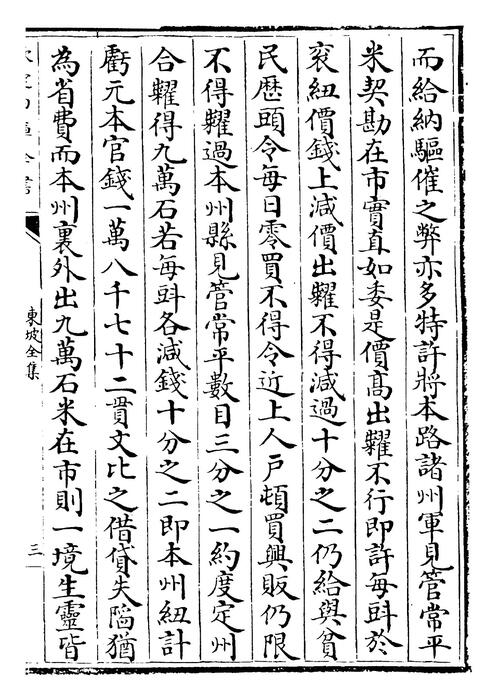 而給納驅催之弊亦多特許將本路諸州軍見管常平
米契勘在市實直如委是價髙出糶不行即許每㪷於
衮紐價錢上減價出糶不得減過十分之二仍給與貧
民歴頭令每日零買不得令近上人戸頓買興販仍限
不得糶過本州縣見管常平數目三分之一約度定州
合糶得九萬石若每㪷各減錢十分之二即本州紐計
虧元本官錢一萬八千七十二貫文比之借貸失陷猶
為省費而本州裏外出九萬石米在市則一境生靈皆
欽定四庫全書
東坡全集
三